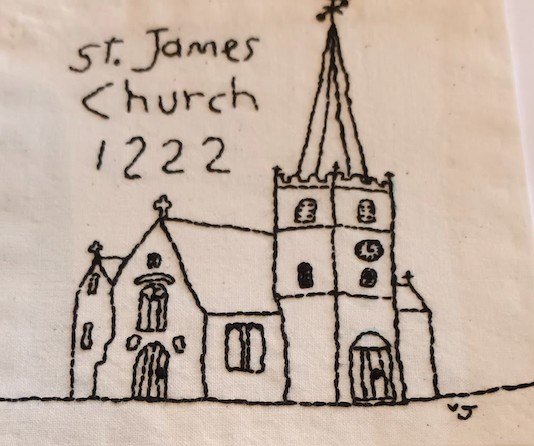 St. James
Church
1222
VJ